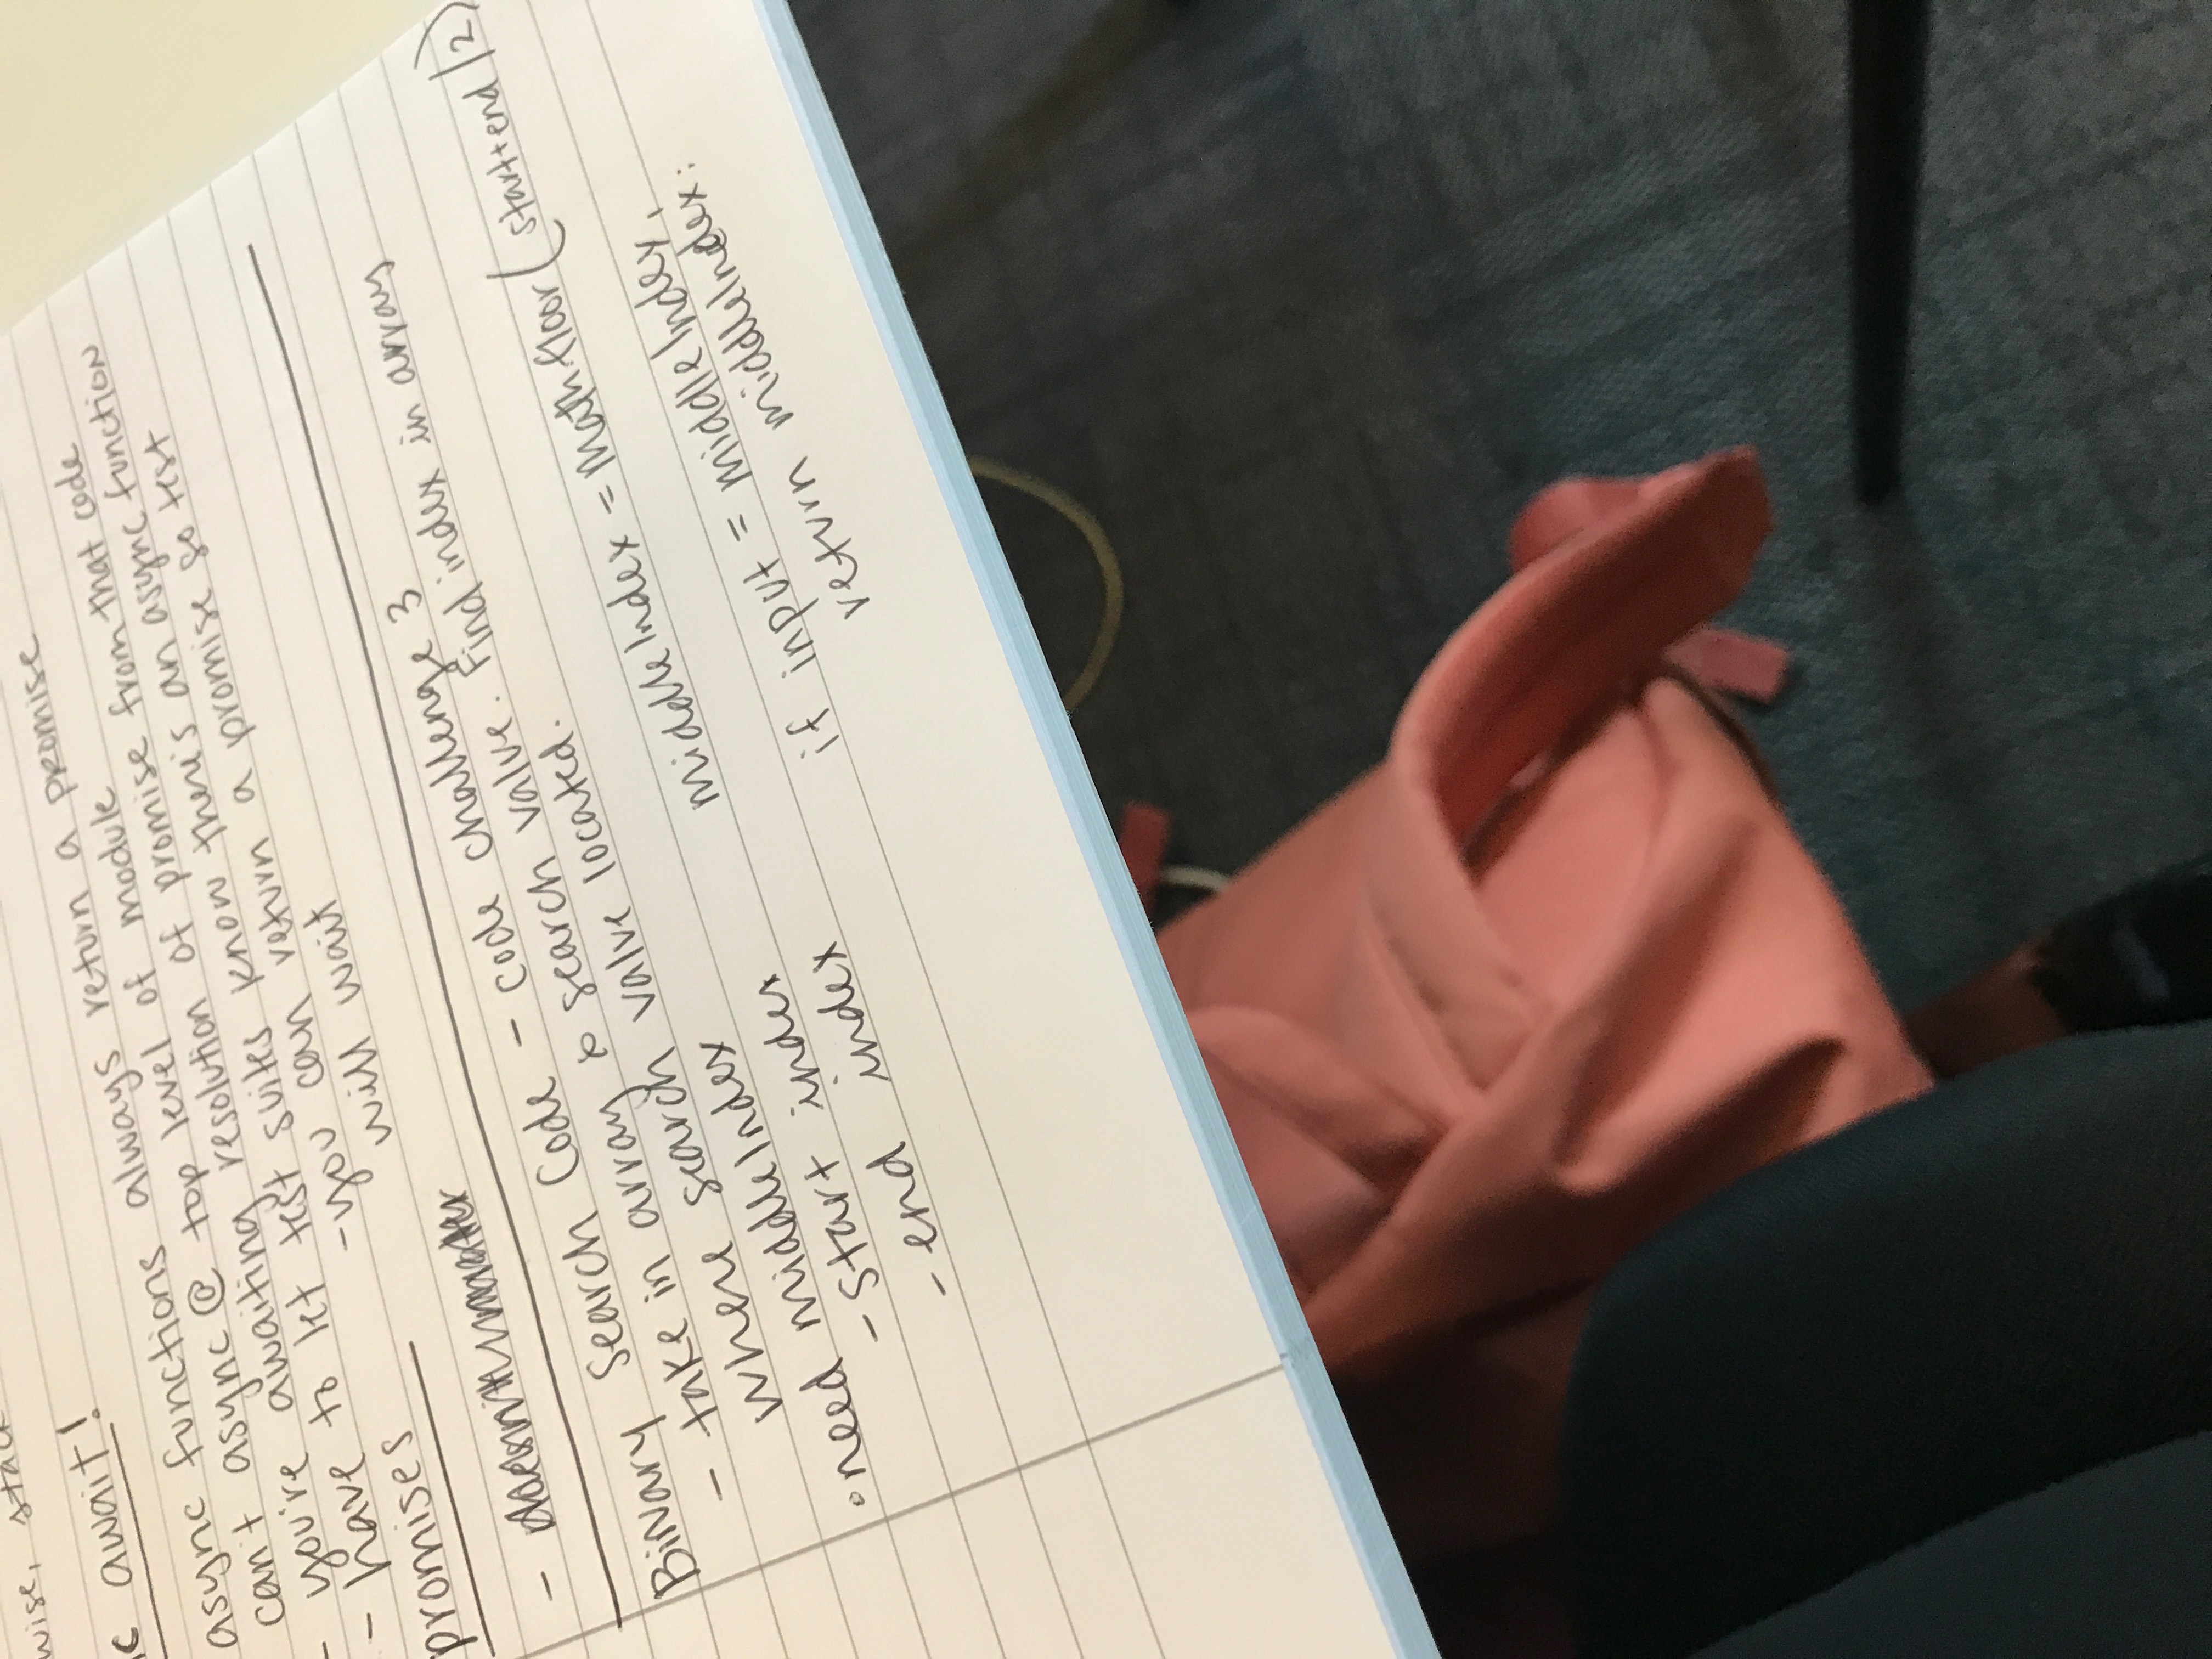 wise, stack
await!
async functions always return a promise
can't async @ top level of module
- you're awaiting resolution of promise from that code
- have to let test suites know there's an async function
- you can return a promise so test
will wait
promises
-
Binary Search Code - code challenge 3
- take in array & search value. Find index in array
where search value located.
• need middleIndex
- start index
- end index
middleIndex = Math.floor(start+end/2)
if input = middleIndex,
return middleIndex;